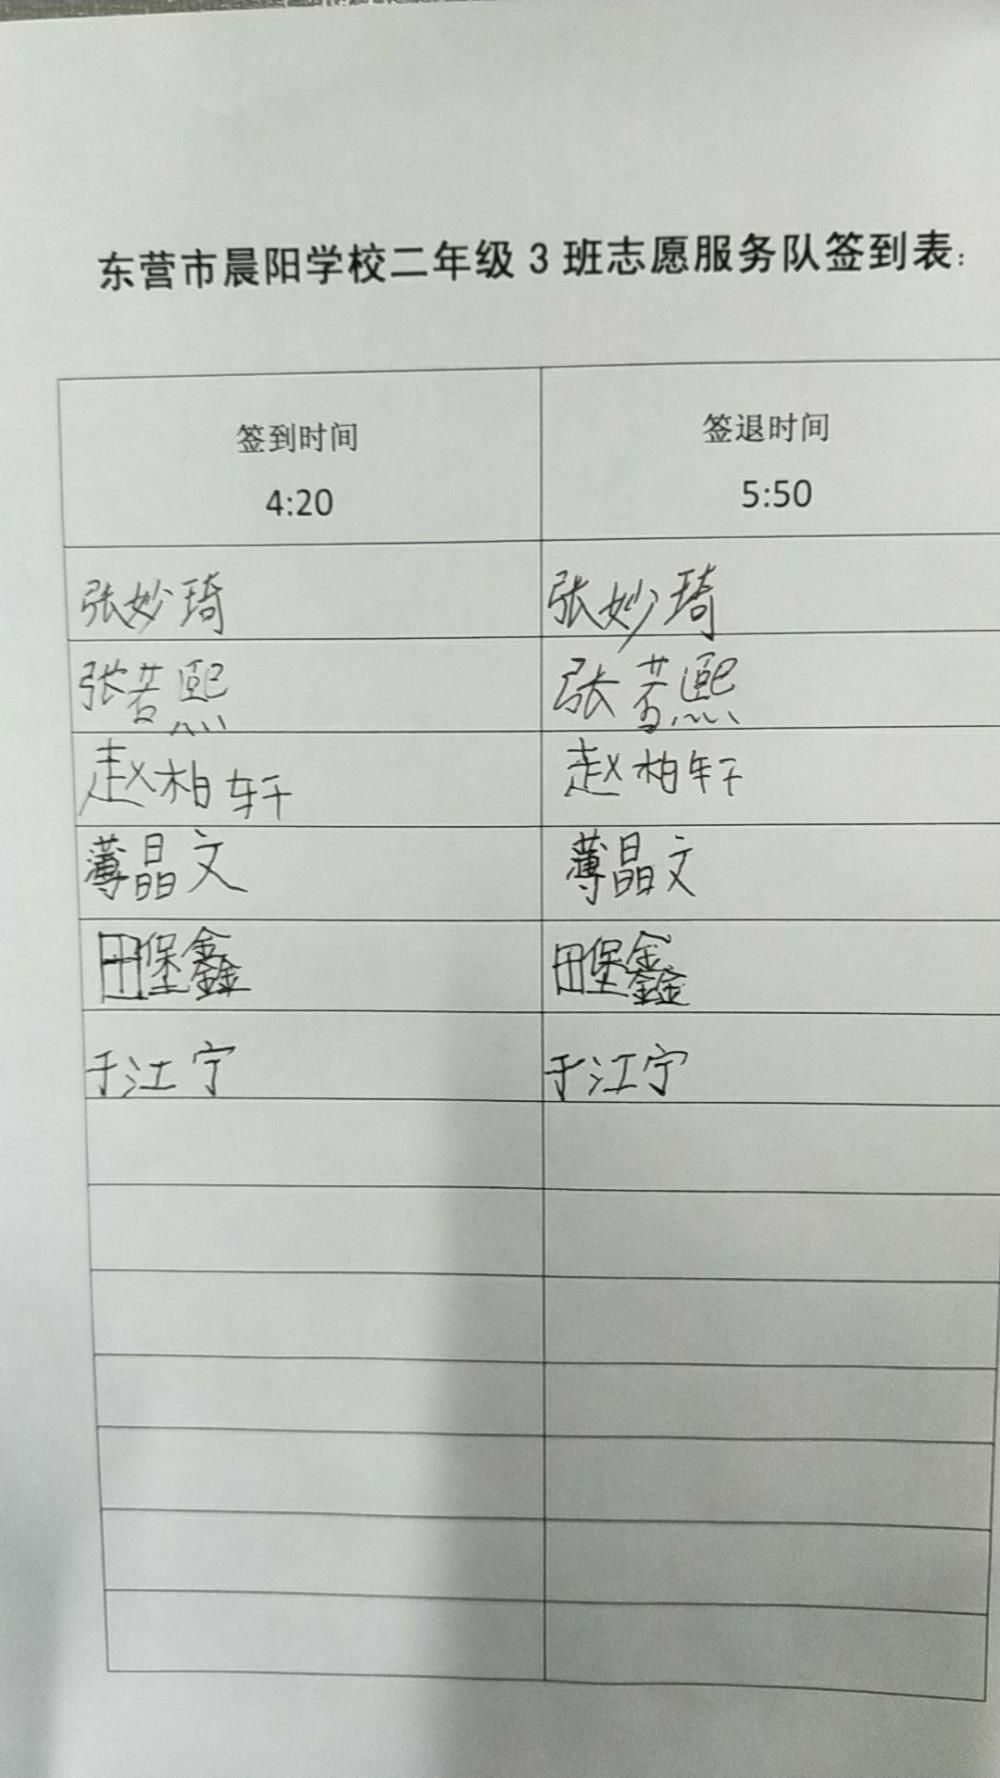 东营市晨阳学校二年级3班志愿服务队签到表：
签到时间 签退时间
4:20 5:50
张妙琦 张妙琦
张若熙 张若熙
赵柏轩 赵柏轩
薄晶文 薄晶文
田堡鑫 田堡鑫
于江宁 于江宁